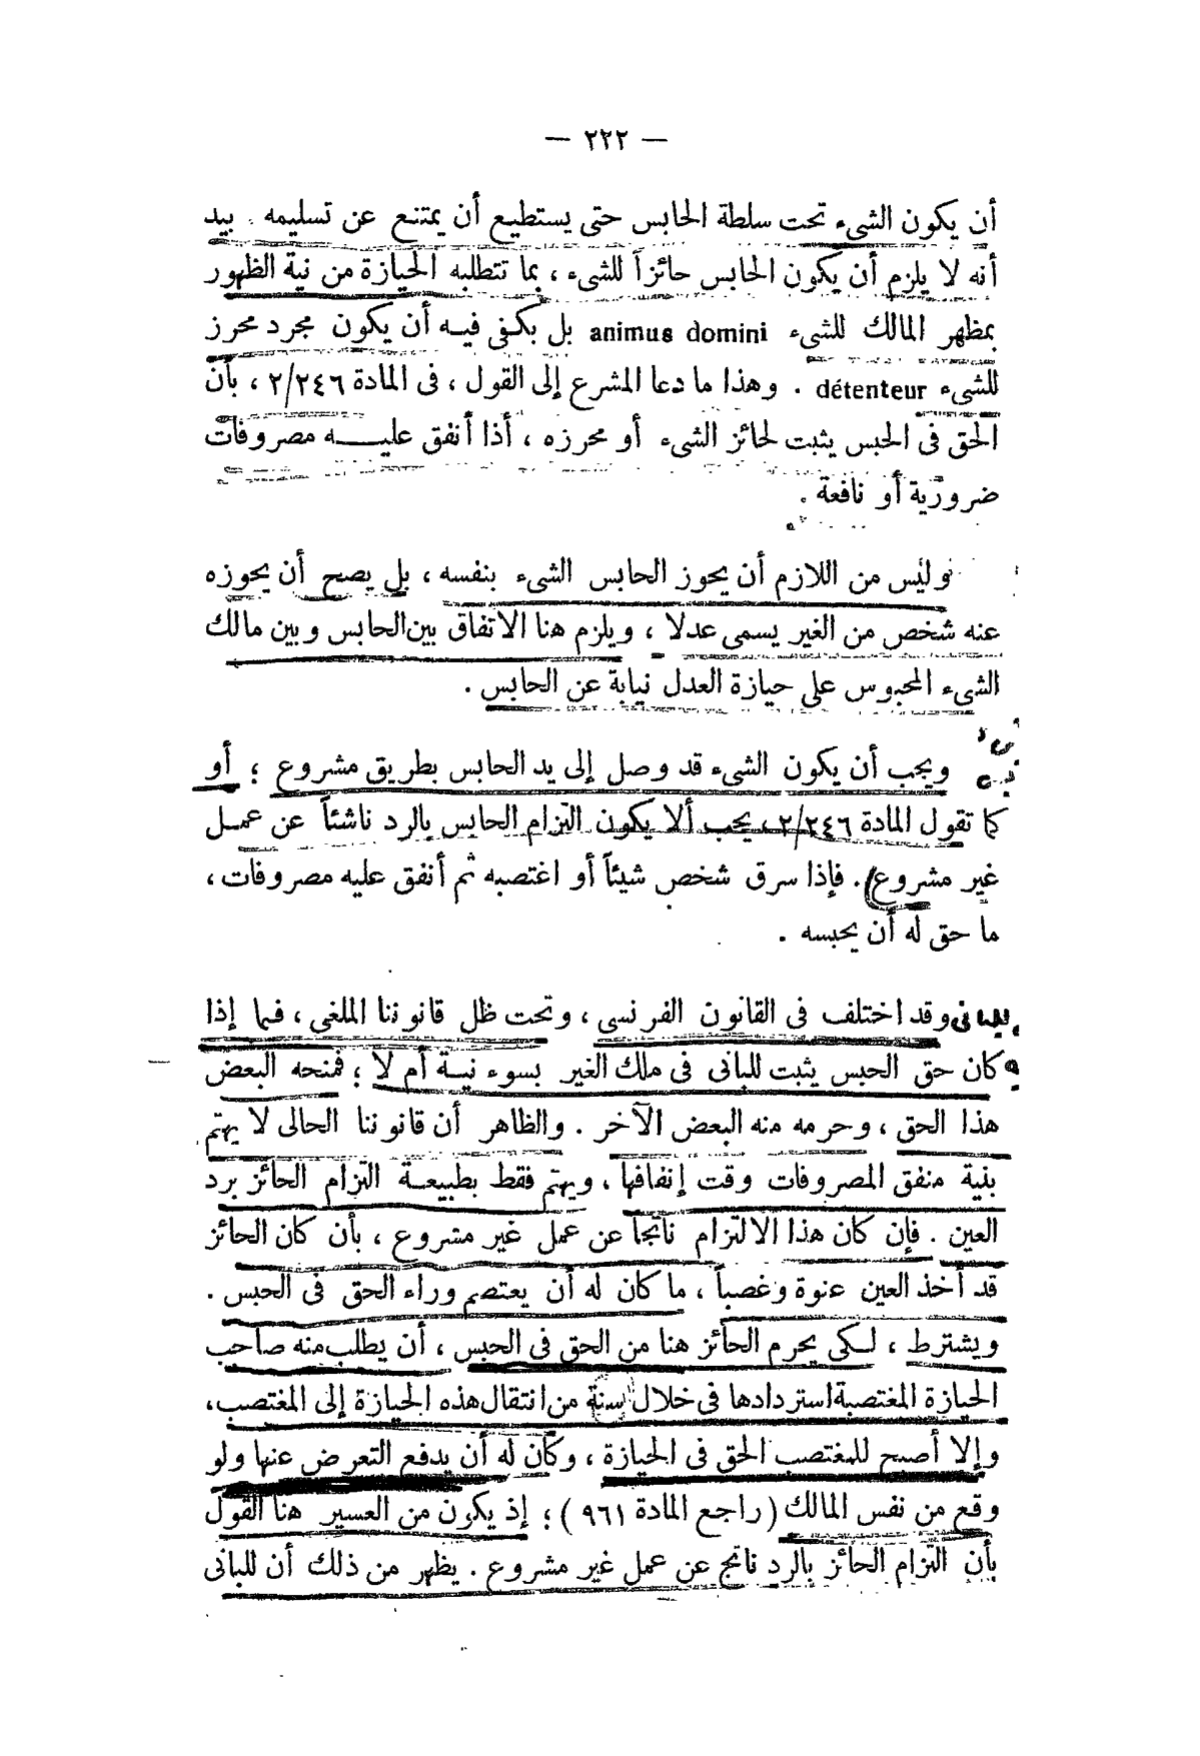 — ٢٢٢ —
أن يكون الشىء تحت سلطة الحابس حتى يستطيع أن يمتنع عن تسليمه . بيد
أنه لا يلزم أن يكون الحابس حائزاً للشىء ، بما تتطلبه الحيازة من نية الظهور
بمظهر المالك للشىء animus domini بل يكفى فيه أن يكون مجرد محرز
للشىء détenteur . وهذا ما دعا المشرع إلى القول ، فى المادة ٢/٢٤٦ ، بأن
الحق فى الحبس يثبت لحائز الشىء أو محرزه ، أذا أنفق عليه مصروفات
ضرورية أو نافعة .
وليس من اللازم أن يحوز الحابس الشىء بنفسه ، بل يصح أن يحوزه
عنه شخص من الغير يسمى عدلا ، ويلزم هنا الاتفاق بين الحابس وبين مالك
الشىء المحبوس على حيازة العدل نيابة عن الحابس .
ويجب أن يكون الشىء قد وصل إلى يد الحابس بطريق مشروع ؛ أو
كما تقول المادة ٢/٢٤٦ ، يجب ألا يكون التزام الحابس بالرد ناشئاً عن عمل
غير مشروع . فإذا سرق شخص شيئاً أو اغتصبه ثم أنفق عليه مصروفات ،
ما حق له أن يحبسه .
وقد اختلف فى القانون الفرنسى ، وتحت ظل قانوننا الملغى ، فيما إذا
كان حق الحبس يثبت للبانى فى ملك الغير بسوء نية أم لا ؛ فمنحه البعض
هذا الحق ، وحرمه منه البعض الآخر . والظاهر أن قانوننا الحالى لا يهتم
بنية منفق المصروفات وقت إنفاقها ، ويهتم فقط بطبيعة التزام الحائز برد
العين . فإن كان هذا الالتزام ناتجاً عن عمل غير مشروع ، بأن كان الحائز
قد أخذ العين عنوة وغصباً ، ما كان له أن يعتصم وراء الحق فى الحبس .
ويشترط ، لكى يحرم الحائز هنا من الحق فى الحبس ، أن يطلب منه صاحب
الحيازة المغتصبة استردادها فى خلال سنة من انتقال هذه الحيازة إلى المغتصب ،
وإلا أصبح للمغتصب الحق فى الحيازة ، وكان له أن يدفع التعرض عنها ولو
وقع من نفس المالك ( راجع المادة ٩٦١ ) ؛ إذ يكون من العسير هنا القول
بأن التزام الحائز بالرد ناتج عن عمل غير مشروع . يظهر من ذلك أن للبانى